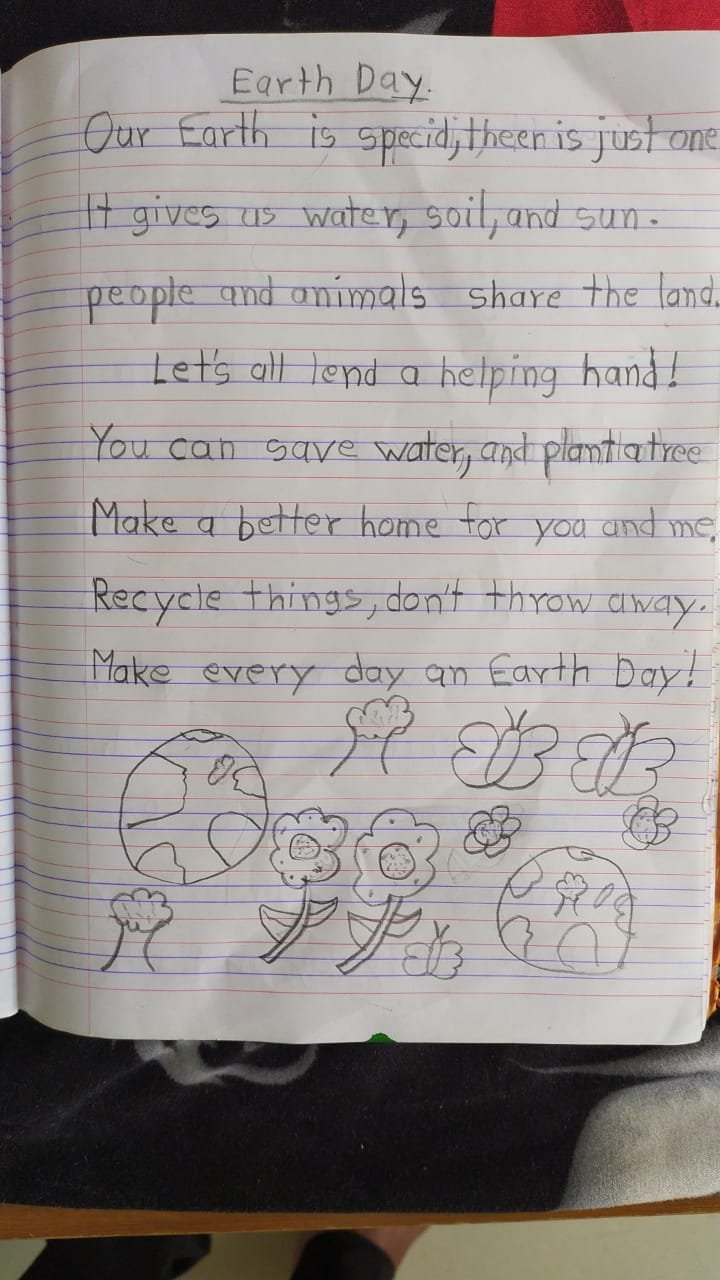 Earth Day.
Our Earth is specid, theen is just one
It gives us water, soil, and sun.
people and animals share the land.
Let's all lend a helping hand!
You can save water, and plant a tree
Make a better home for you and me.
Recycle things, don't throw away.
Make every day an Earth Day!